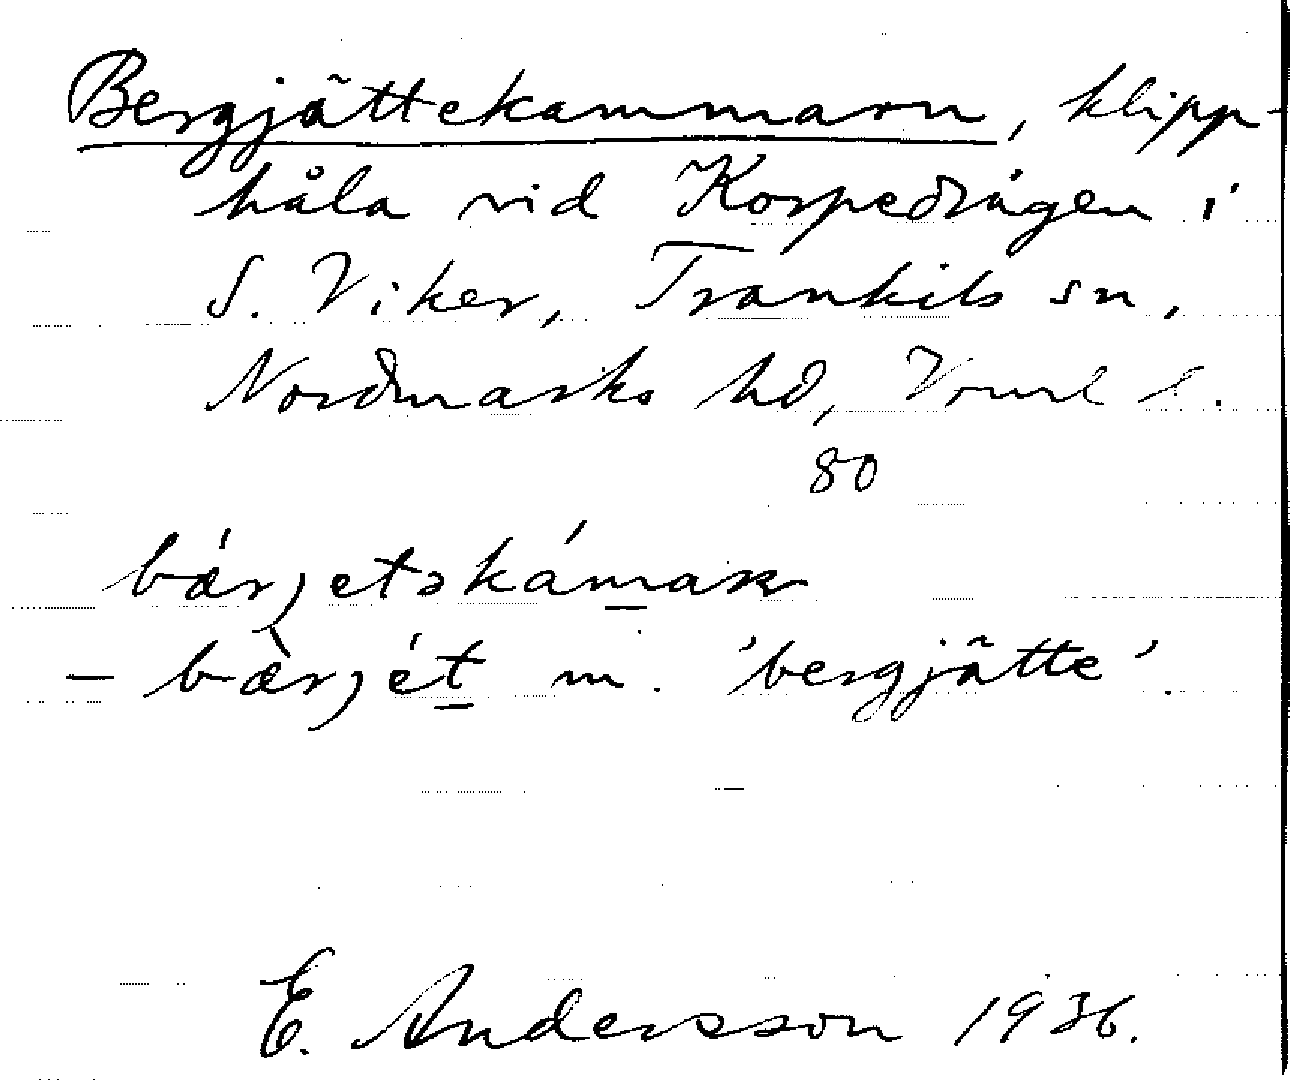 Bergjättekammarn, klipp-
håla vid Korpedrågen i
S. Viker, Trankils sn,
Nordmarks hd, Vrml l.
80
bá̈rjetəkámar
– bæ̀rjét m. 'bergjätte'.
E. Andersson 1936.